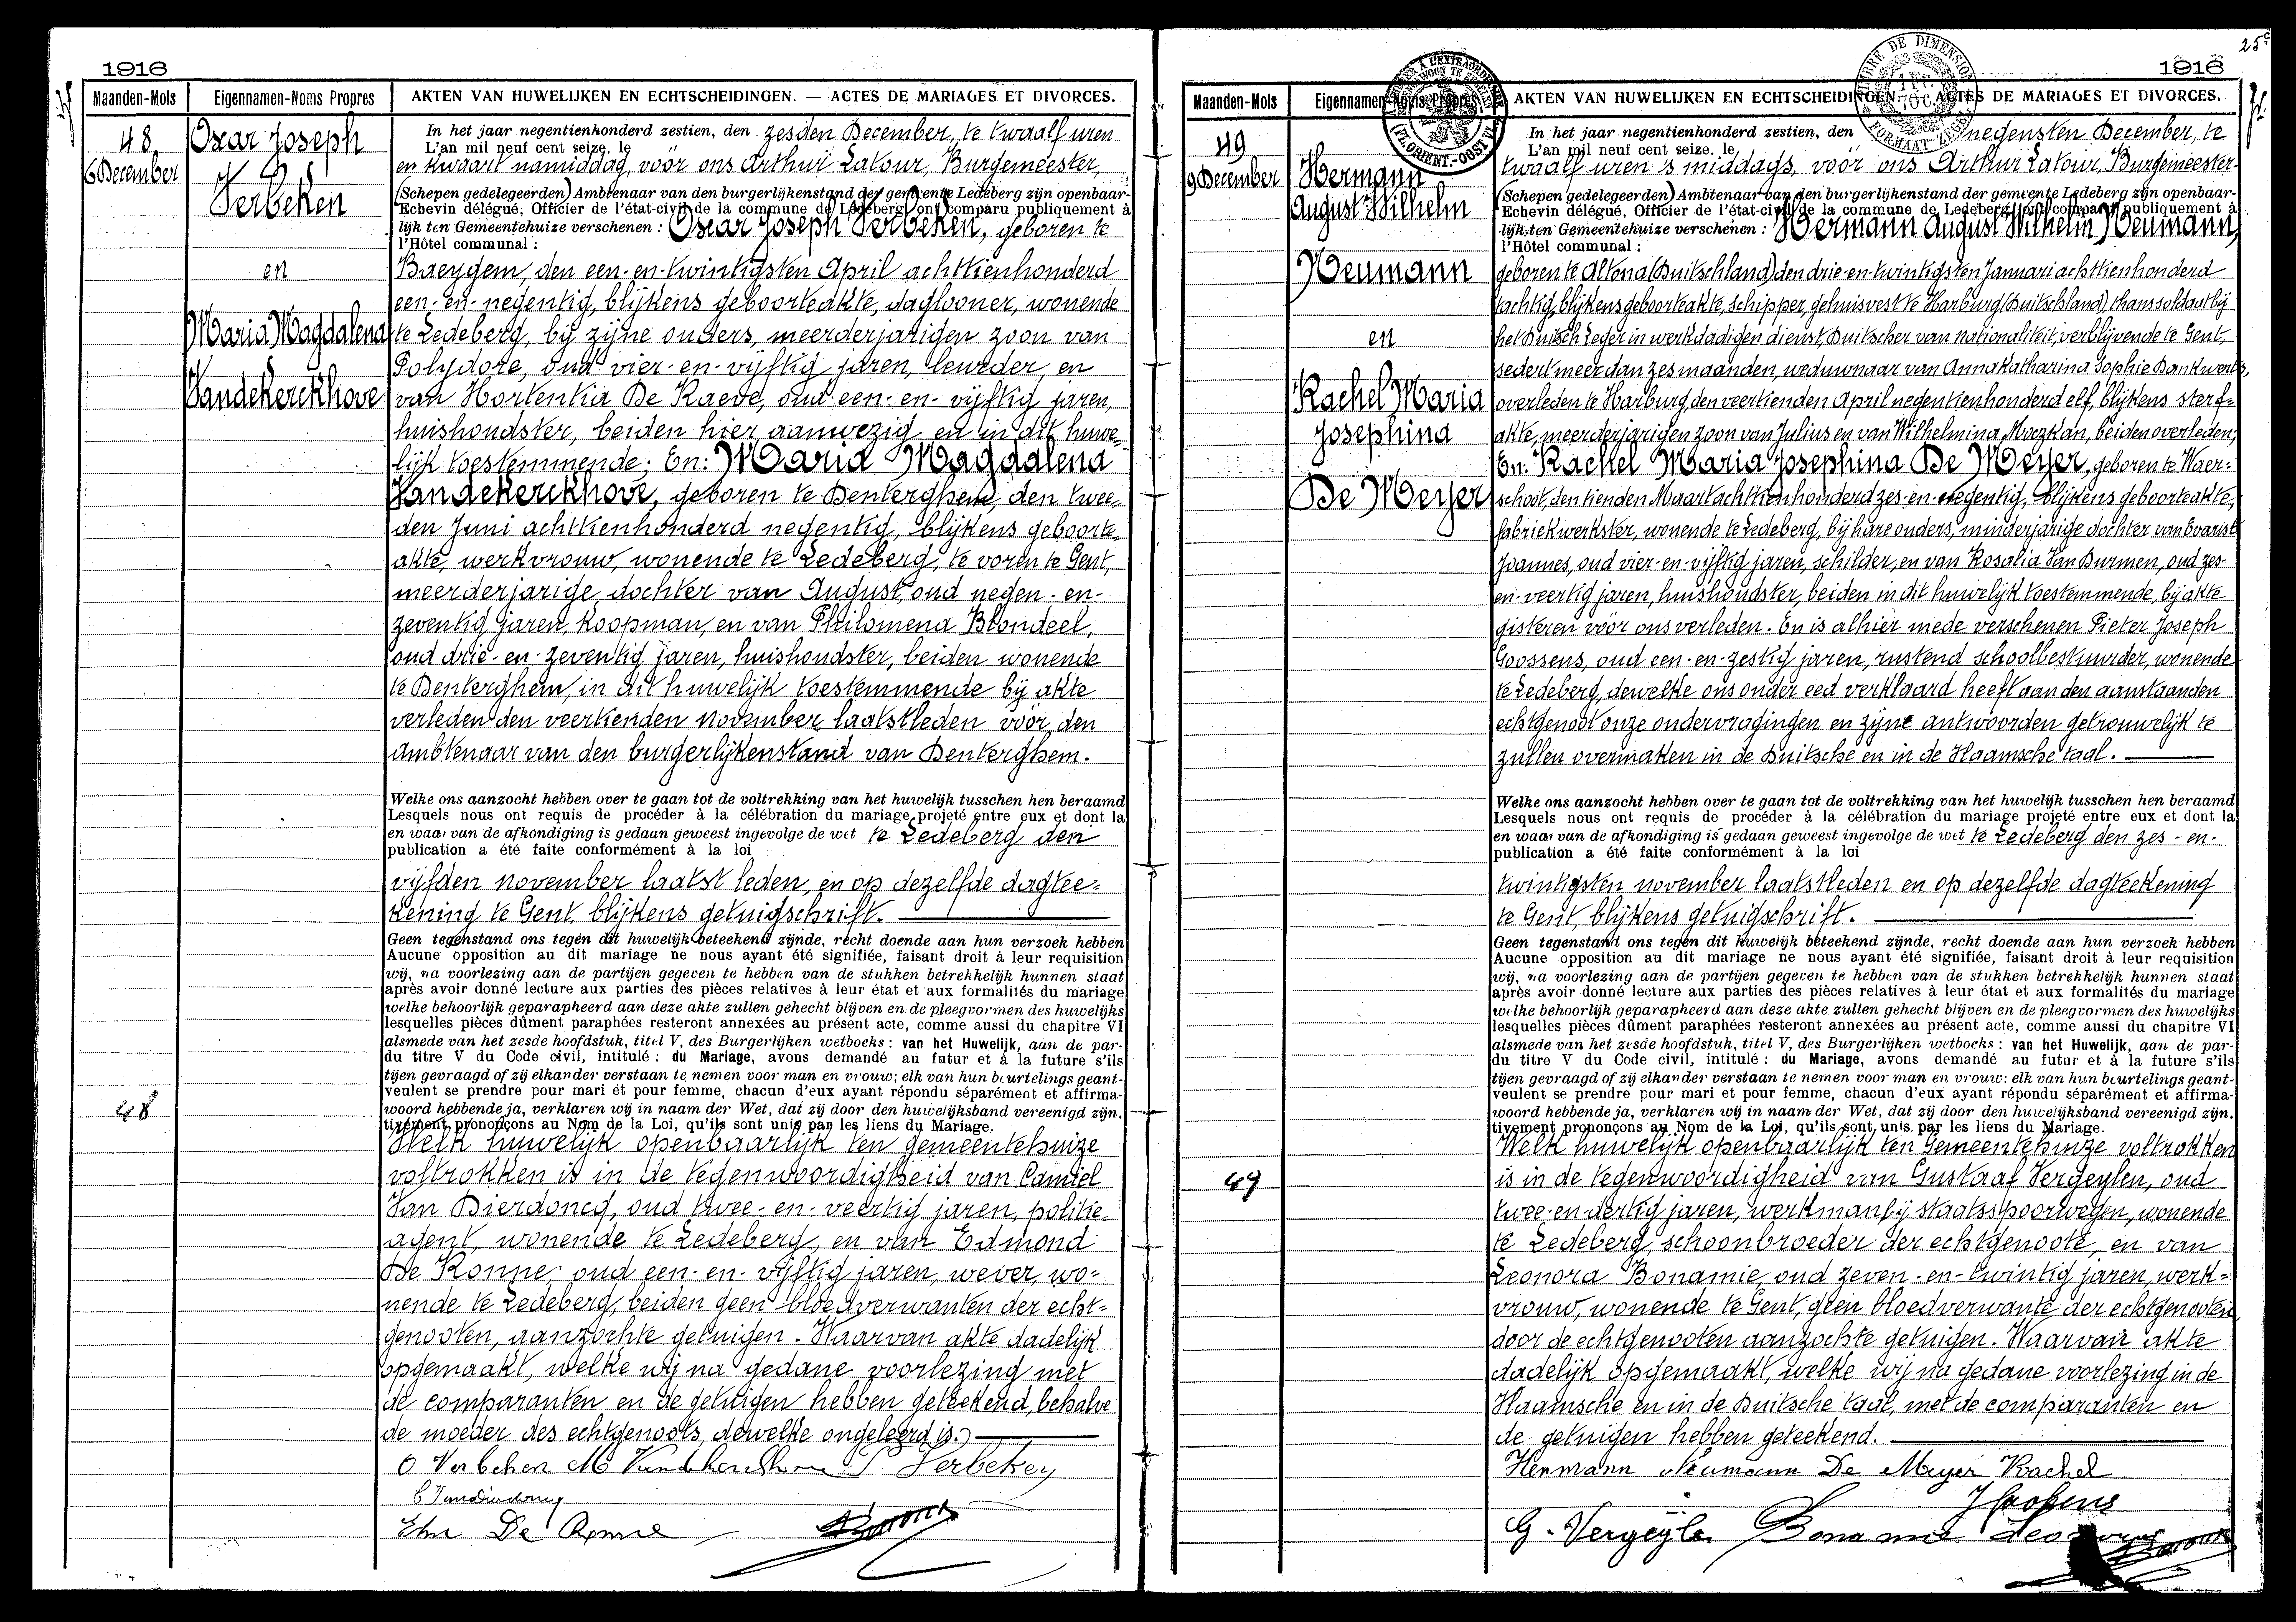 1916
Maanden-Mols
Eigennamen-Noms Propres
AKTEN VAN HUWELIJKEN EN ECHTSCHEIDINGEN. — ACTES DE MARIAGES ET DIVORCES.
48.
6 December
Oscar Joseph
Verbeken
en
Maria Magdalena
Vandekerckhove
In het jaar negentienhonderd zestien, den zesden December, te twaalf uren
L'an mil neuf cent seize, le
en kwaart namiddag, voor ons Arthur Latour, Burgemeester,
(Schepen gedelegeerden) Ambtenaar van den burgerlijkenstand der gemeente Ledeberg zijn openbaar-
Echevin délégué, Officier de l'état-civil de la commune de Ledeberg ont comparu publiquement à
lijk ten Gemeentehuize verschenen : Oscar Joseph Verbeken, geboren te
l'Hôtel communal :
Baeygem, den een-en-twintigsten April achttienhonderd
een-en-negentig, blijkens geboorteakte, daglooner, wonende
te Ledeberg, bij zijne ouders, meerderjarigen zoon van
Polydore, oud vier-en-vijftig jaren, leurder, en
van Hortentia De Raeve, oud een-en-vijftig jaren,
huishoudster, beiden hier aanwezig en in dit huwe-
lijk toestemmende; En: Maria Magdalena
Vandekerckhove, geboren te Denterghem, den twee-
den Juni achttienhonderd negentig, blijkens geboorte-
akte, werkvrouw, wonende te Ledeberg, te voren te Gent,
meerderjarige dochter van August, oud negen-en-
zeventig jaren, koopman, en van Philomena Blondeel,
oud drie-en-zeventig jaren, huishoudster, beiden wonende
te Denterghem, in dit huwelijk toestemmende bij akte
verleden den veertienden November laatstleden voor den
ambtenaar van den burgerlijkenstand van Denterghem.
Welke ons aanzocht hebben over te gaan tot de voltrekking van het huwelijk tusschen hen beraamd
Lesquels nous ont requis de procéder à la célébration du mariage projeté entre eux et dont la
en waarvan de afkondiging is gedaan geweest ingevolge de wet te Ledeberg den
publication a été faite conformément à la loi
vijfden november laatst leden, en op dezelfde dagtee-
kening te Gent, blijkens getuigschrift.
Geen tegenstand ons tegen dit huwelijk beteekend zijnde, recht doende aan hun verzoek hebben
Aucune opposition au dit mariage ne nous ayant été signifiée, faisant droit à leur requisition
wij, na voorlezing aan de partijen gegeven te hebben van de stukken betrekkelijk hunnen staat
après avoir donné lecture aux parties des pièces relatives à leur état et aux formalités du mariage
welke behoorlijk geparapheerd aan deze akte zullen gehecht blijven en de pleegvormen des huwelijks
lesquelles pièces dûment paraphées resteront annexées au présent acte, comme aussi du chapitre VI
alsmede van het zesde hoofdstuk, titel V, des Burgerlijken wetboeks : van het Huwelijk, aan de par-
du titre V du Code civil, intitulé : du Mariage, avons demandé au futur et à la future s'ils
tijen gevraagd of zij elkander verstaan te nemen voor man en vrouw; elk van hun beurtelings geant-
veulent se prendre pour mari et pour femme, chacun d'eux ayant répondu séparément et affirma-
48
woord hebbende ja, verklaren wij in naam der Wet, dat zij door den huwelijksband vereenigd zijn.
tivement, prononçons au Nom de la Loi, qu'ils sont unis par les liens du Mariage.
Welk huwelijk openbaarlijk ten gemeentehuize
voltrokken is in de tegenwoordigheid van Camiel
Van Bierdoncq, oud twee-en-veertig jaren, politie-
agent, wonende te Ledeberg, en van Edmond
De Ronne, oud een-en-vijftig jaren, wever, wo-
nende te Ledeberg, beiden geen bloedverwanten der echt-
genooten, aanzochte getuigen. Waarvan akte dadelijk
opgemaakt, welke wij na gedane voorlezing met
de comparanten en de getuigen hebben geteekend, behalve
de moeder des echtgenoots, dewelke ongeleerd is.
O Verbeken
Verbeken
De Ronne
25e
1916
Maanden-Mols
Eigennamen-Noms Propres
AKTEN VAN HUWELIJKEN EN ECHTSCHEIDINGEN. — ACTES DE MARIAGES ET DIVORCES.
TIMBRE DE DIMENSION
49
9 December
Hermann
August Wilhelm
Neumann
en
Rachel Maria
Josephina
De Meyer
In het jaar negentienhonderd zestien, den negensten December, te
L'an mil neuf cent seize, le
twaalf uren 's middags, voor ons Arthur Latour, Burgemeester
(Schepen gedelegeerden) Ambtenaar van den burgerlijkenstand der gemeente Ledeberg zijn openbaar-
Echevin délégué, Officier de l'état-civil de la commune de Ledeberg ont comparu publiquement à
lijk ten Gemeentehuize verschenen : Hermann August Wilhelm Neumann,
l'Hôtel communal :
geboren te Altona (Duitschland) den drie-en-twintigsten Januari achttienhonderd
tachtig, blijkens geboorteakte, schipper, gehuisvest te Harburg (Duitschland), thans soldaat bij
het Duitsch Leger in werkdadigen dienst, Duitscher van nationaliteit, verblijvende te Gent,
sedert meer dan zes maanden, weduwnaar van Anna Katharina Sophie Dankwerts,
overleden te Harburg, den veertienden April negentienhonderd elf, blijkens sterf-
akte, meerderjarigen zoon van Julius en van Wilhelmina Maczkan, beiden overleden;
En: Rachel Maria Josephina De Meyer, geboren te Waer-
schoot, den tienden Maart achttienhonderd zes-en-negentig, blijkens geboorteakte,
fabriekwerkster, wonende te Ledeberg, bij hare ouders, minderjarige dochter van Evarist
Joannes, oud vier-en-vijftig jaren, schilder, en van Rosalia Van Durmen, oud zes-
en-veertig jaren, huishoudster, beiden in dit huwelijk toestemmende, bij akte
gisteren voor ons verleden. En is alhier mede verschenen Pieter Joseph
Goossens, oud een-en-zestig jaren, rustend schoolbestuurder, wonende
te Ledeberg, dewelke ons onder eed verklaard heeft aan den aanstaanden
echtgenoot onze ondervragingen en zijne antwoorden getrouwelijk te
zullen overmaken in de Duitsche en in de Vlaamsche taal.
Welke ons aanzocht hebben over te gaan tot de voltrekking van het huwelijk tusschen hen beraamd
Lesquels nous ont requis de procéder à la célébration du mariage projeté entre eux et dont la
en waarvan de afkondiging is gedaan geweest ingevolge de wet te Ledeberg den zes-en-
publication a été faite conformément à la loi
twintigsten november laatstleden en op dezelfde dagteekening
te Gent, blijkens getuigschrift.
Geen tegenstand ons tegen dit huwelijk beteekend zijnde, recht doende aan hun verzoek hebben
Aucune opposition au dit mariage ne nous ayant été signifiée, faisant droit à leur requisition
wij, na voorlezing aan de partijen gegeven te hebben van de stukken betrekkelijk hunnen staat
après avoir donné lecture aux parties des pièces relatives à leur état et aux formalités du mariage
welke behoorlijk geparapheerd aan deze akte zullen gehecht blijven en de pleegvormen des huwelijks
lesquelles pièces dûment paraphées resteront annexées au présent acte, comme aussi du chapitre VI
alsmede van het zesde hoofdstuk, titel V, des Burgerlijken wetboeks : van het Huwelijk, aan de par-
du titre V du Code civil, intitulé : du Mariage, avons demandé au futur et à la future s'ils
tijen gevraagd of zij elkander verstaan te nemen voor man en vrouw; elk van hun beurtelings geant-
veulent se prendre pour mari et pour femme, chacun d'eux ayant répondu séparément et affirma-
woord hebbende ja, verklaren wij in naam der Wet, dat zij door den huwelijksband vereenigd zijn.
tivement prononçons au Nom de la Loi, qu'ils sont unis par les liens du Mariage.
49
Welk huwelijk openbaarlijk ten Gemeentehuize voltrokken
is in de tegenwoordigheid van Gustaaf Vergeylen, oud
twee-en-dertig jaren, werkman bij staatsspoorwegen, wonende
te Ledeberg, schoonbroeder der echtgenoote, en van
Leonora Bonamie, oud zeven-en-twintig jaren, werk-
vrouw, wonende te Gent, geen bloedverwante der echtgenooten
door de echtgenooten aanzochte getuigen. Waarvan akte
dadelijk opgemaakt, welke wij na gedane voorlezing in de
Vlaamsche en in de Duitsche taal, met de comparanten en
de getuigen hebben geteekend.
Hermann Neumann De Meyer Rachel
G. Vergeylen Bonamie